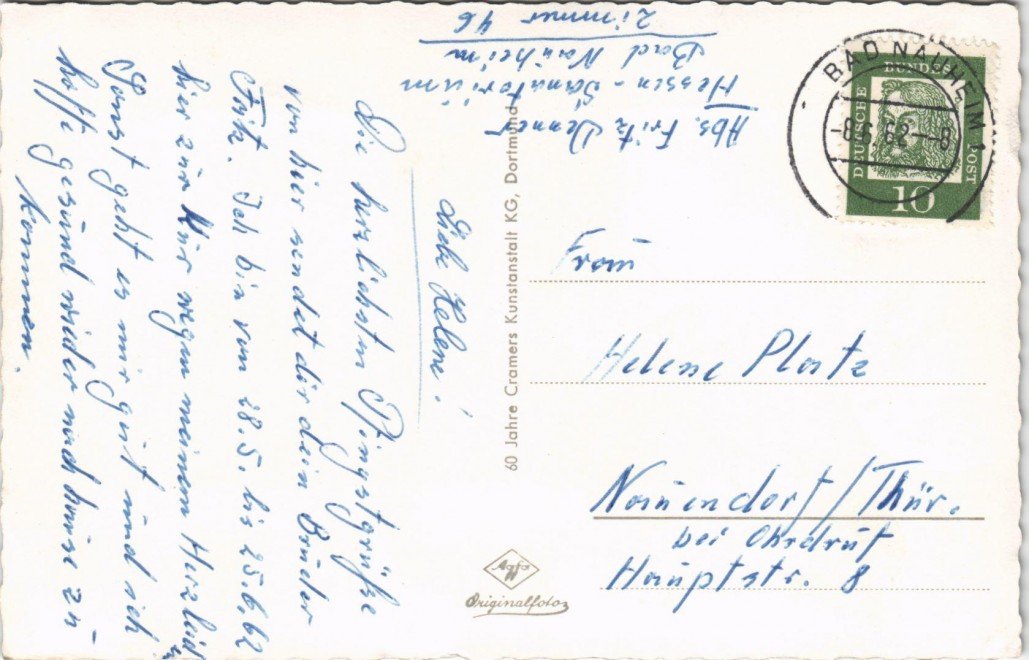 Abs. Fritz Denner
Hessen-Sanatorium
Bad Nauheim
Zimmer 46
Liebe Helene!
Die herzlichsten Pfingstgrüße
von hier sendet dir dein Bruder
Fritz. Ich bin vom 28.5. bis 25.6.62
hier zur Kur wegen meinem Herzleid
Sonst geht es mir gut und ich
hoffe gesund wider nach hause zu
kommen.
60 Jahre Cramers Kunstanstalt KG, Dortmund
BAD NAUHEIM 1
-8.6.62--8
DEUTSCHE
BUNDES
POST
10
Frau
Helene Platz
Nauendorf/Thür.
bei Ohrdruf
Hauptstr. 8
Agfa
Originalfoto